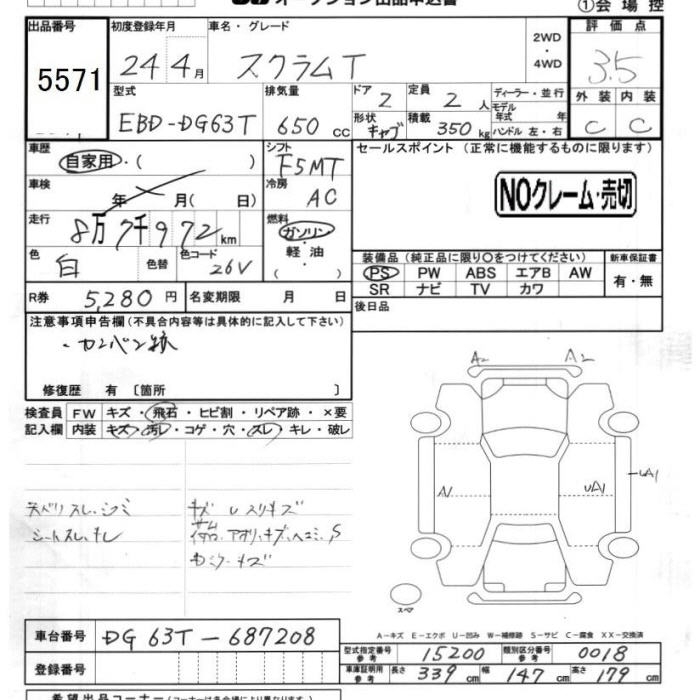 オークション出品申込書
①会場控
出品番号
5571
初度登録年月
24年4月
車名・グレード
スクラムT
2WD
・
4WD
評価点
3.5
型式
EBD-DG63T
排気量
650cc
ドア
2
定員
2人
ディーラー・並行
モデル年式 年
外装
C
内装
C
形状
キャブ
積載
350kg
ハンドル 左・右
車歴
自家用・( )
シフト
F5MT
セールスポイント (正常に機能するものに限ります)
車検
年 月( 日)
冷房
AC
NOクレーム・売切
走行
8万7千972km
燃料
ガソリン
・
軽油
・
( )
色
白
色替
色コード
26V
装備品(純正品に限り○をつけてください)
新車保証書
PS PW ABS エアB AW
SR ナビ TV カワ
有・無
R券
5,280円
名変期限 月 日
後日品
注意事項申告欄(不具合内容等は具体的に記入して下さい)
修復歴 有 〔箇所 〕
検査員 FW キズ・飛石・ヒビ割・リペア跡・×要
記入欄 内装 キズ・汚レ・コゲ・穴・スレ・キレ・破レ
A2 A2
UA1
UA1
シートスレ、キレ
スペア
A-キズ E-エクボ U-凹み W-補修跡 S-サビ C-腐食 XX-交換済
車台番号
DG63T-687208
型式指定番号
参考
15200
類別区分番号
参考
0018
登録番号
車庫証明用
参考
長さ 339cm 幅 147cm 高さ 179cm
希望出品コーナー(コーナーは各会場により異なります)